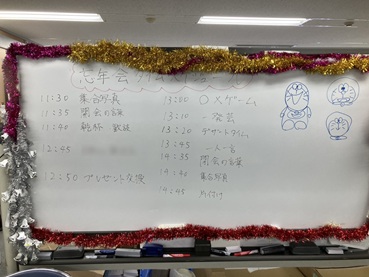 忘年会
11:30 集合写真
11:35 開会の言葉
11:40 乾杯 歓談
12:45
12:50 プレゼント交換
13:00 〇×ゲーム
13:10 一発芸
13:20 デザートタイム
13:45 一人一言
14:35 閉会の言葉
14:40 集合写真
14:45 片付け